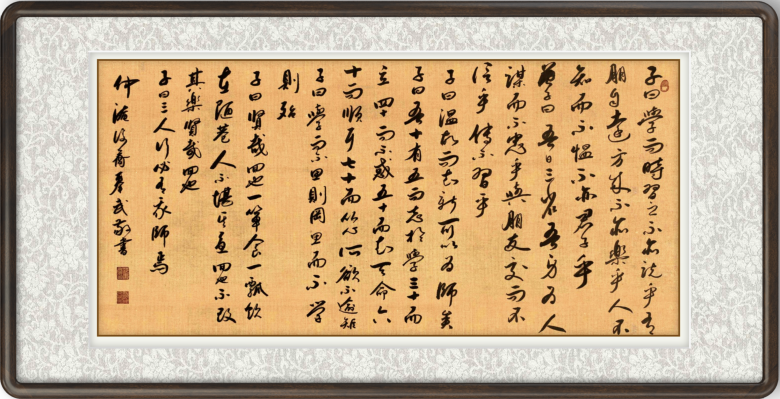 子曰學而時習之不亦說乎有
朋自遠方來不亦樂乎人不
知而不慍不亦君子乎
曾子曰吾日三省吾身为人
謀而不忠乎與朋友交而不
信乎傳不習乎
子曰溫故而知新可以为師矣
子曰吾十有五而志於學三十而
立四十而不惑五十而知天命六
十而順耳七十而從心所欲不逾矩
子曰學而不思則罔思而不學
則殆
子曰賢哉回也一簞食一瓢飲
在陋巷人不堪其憂回也不改
其樂賢哉回也
子曰三人行必有我師焉
武敬書